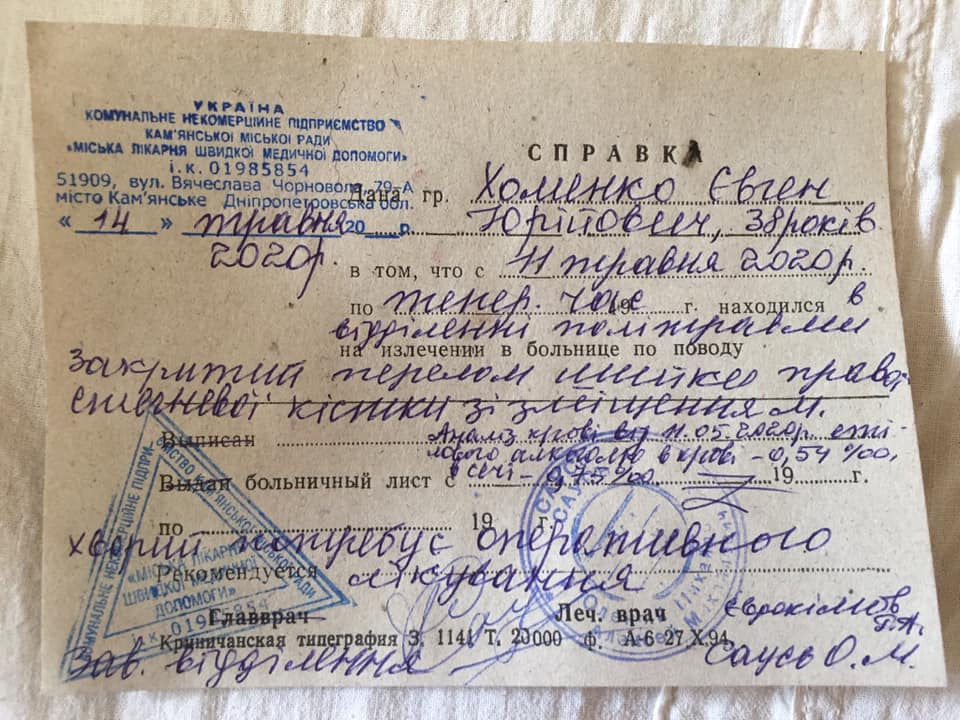 УКРАЇНА
КОМУНАЛЬНЕ НЕКОМЕРЦІЙНЕ ПІДПРИЄМСТВО
КАМ'ЯНСЬКОЇ МІСЬКОЇ РАДИ
«МІСЬКА ЛІКАРНЯ ШВИДКОЇ МЕДИЧНОЇ ДОПОМОГИ»
і.к. 01985854
51909, вул. Вячеслава Чорновола, 79-А
місто Кам'янське Дніпропетровська обл.
« 14 » травня 20 р.
2020р.
СПРАВКА
Дана гр. Хоменко Євген
Юрійович, 38 років
в том, что с 11 травня 2020р.
по тепер. час 19 г. находился в
відділенні політравми
на излечении в больнице по поводу
закритий перелом шийки правої
стегнової кістки зі зміщенням.
Выписан Аналіз крові від 11.05.2020р. ети-
лового алкоголю в крові - 0,54 %00,
Выдан больничный лист с в сечі - 0,75 %00 19 г.
по 19 г.
хворий потребує оперативного
Рекомендуется лікування
Главврач Леч. врач
Криничанская типография З. 1141 Т. 20000 ф. А-6-27 X.94.
Зав. відділення Саусь О.М.
КОМУНАЛЬНЕ НЕКОМЕРЦІЙНЕ ПІДПРИЄМСТВО КАМ'ЯНСЬКОЇ МІСЬКОЇ РАДИ
«МІСЬКА ЛІКАРНЯ
ШВИДКОЇ МЕДИЧНОЇ
ДОПОМОГИ»
і.к. 01985854